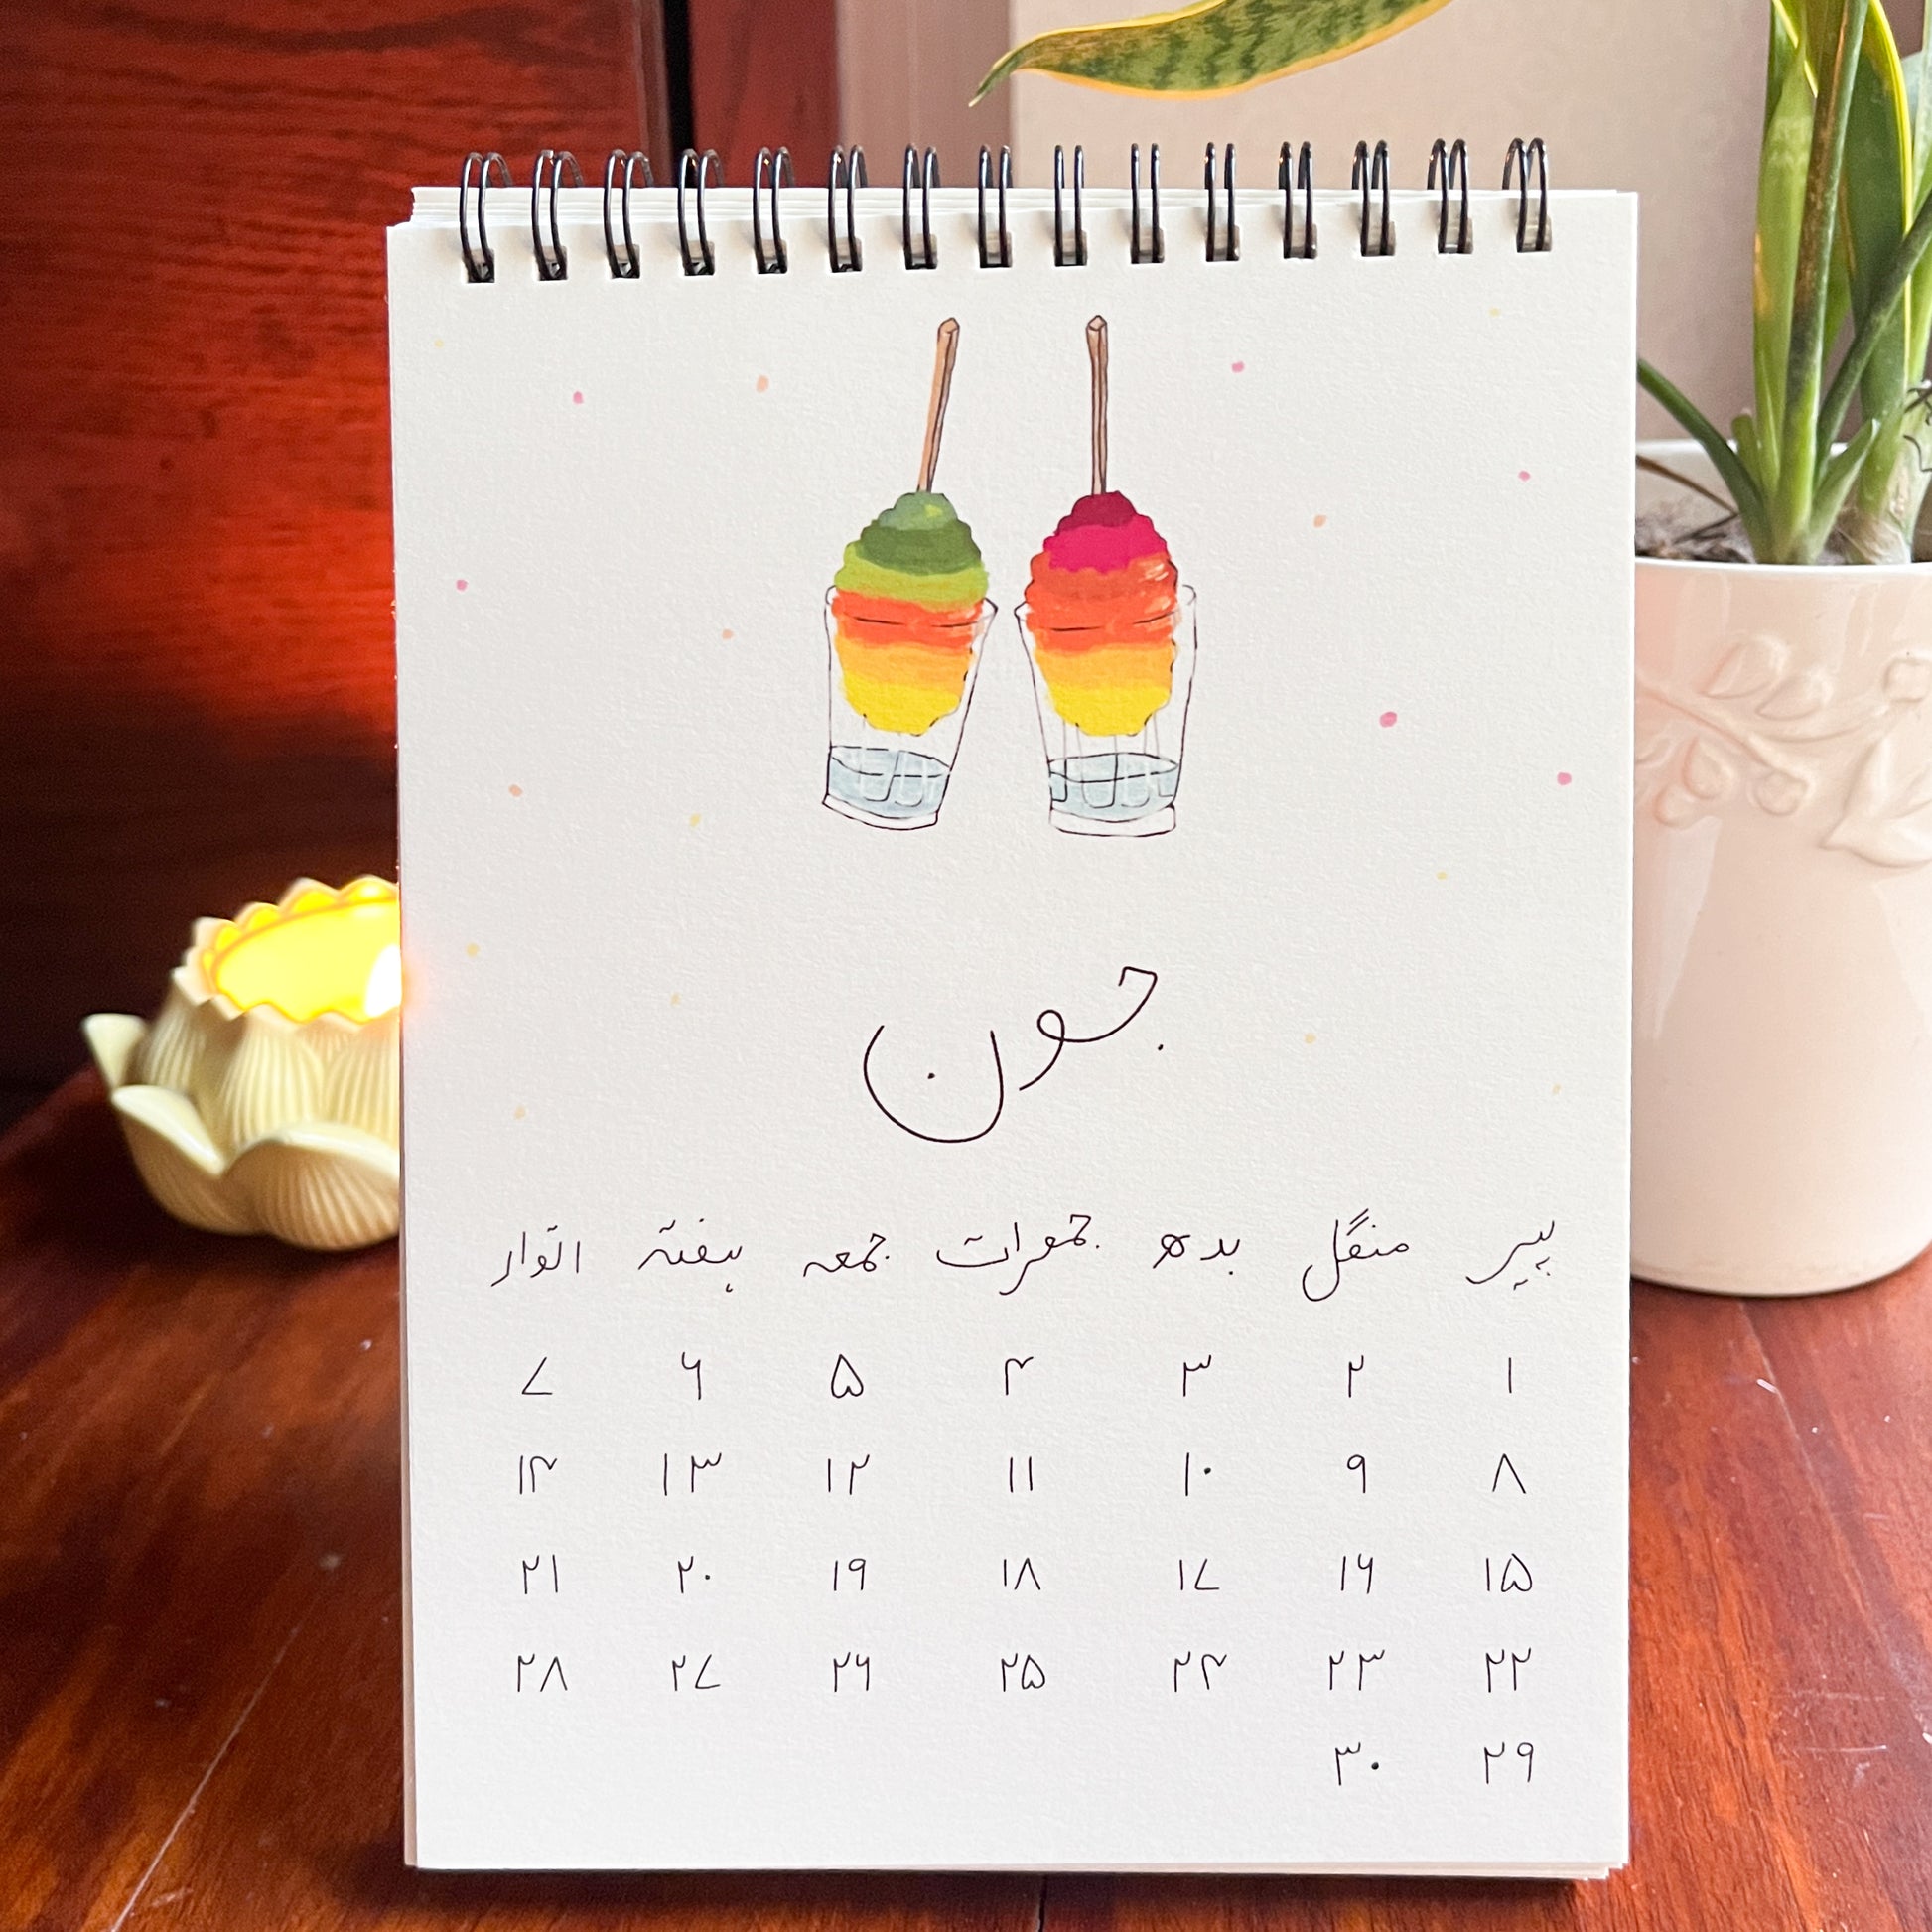 جون
پیر منگل بدھ جمعرات جمعہ ہفتہ اتوار
۱ ۲ ۳ ۴ ۵ ۶ ۷
۸ ۹ ۱۰ ۱۱ ۱۲ ۱۳ ۱۴
۱۵ ۱۶ ۱۷ ۱۸ ۱۹ ۲۰ ۲۱
۲۲ ۲۳ ۲۴ ۲۵ ۲۶ ۲۷ ۲۸
۲۹ ۳۰